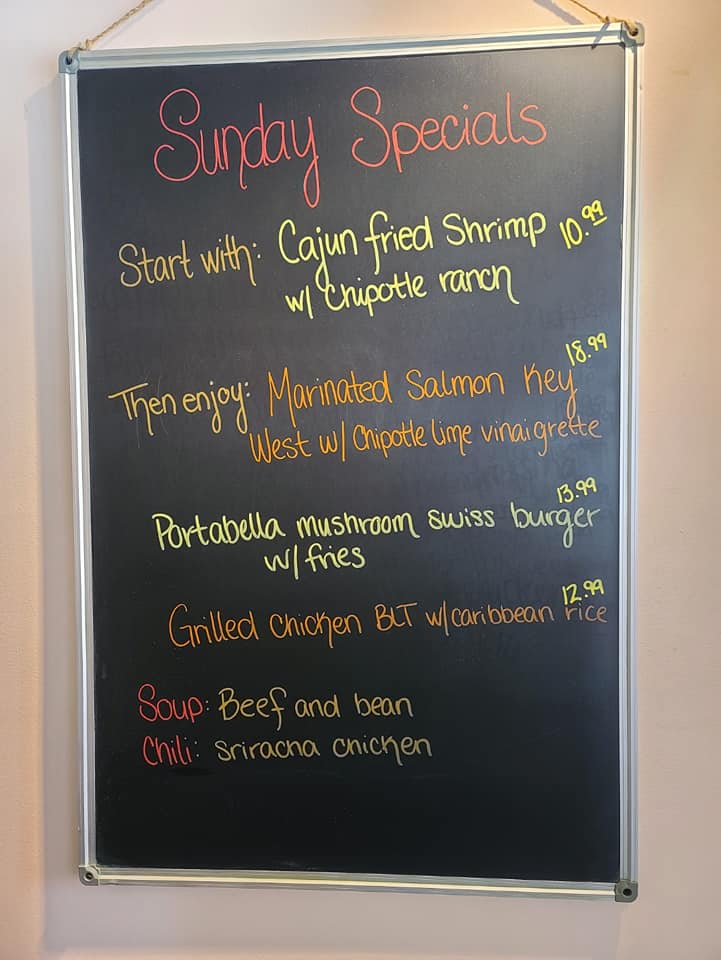 Sunday Specials
Start with: Cajun fried Shrimp 10.99
w/ Chipotle ranch
18.99
Then enjoy: Marinated Salmon Key
West w/ Chipotle lime vinaigrette
13.99
Portabella mushroom swiss burger
w/ fries
12.99
Grilled Chicken BLT w/caribbean rice
Soup: Beef and bean
Chili: sriracha chicken